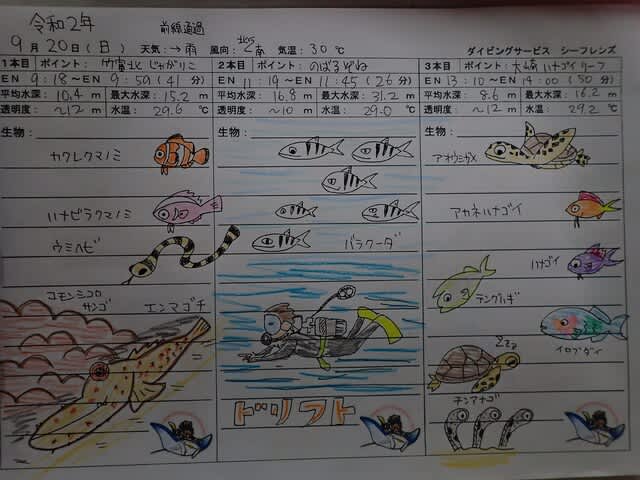 令和2年
前線通過
9月20日(日) 天気:→雨 風向: 北のち南 気温:30℃ ダイビングサービス シーフレンズ
1本目 ポイント: 竹富北 じゃがりこ
EN 9:18~9:59(41分)
平均水深: 10.4 m 最大水深: 15.2 m
透明度: ~12 m 水温: 29.6 ℃
生物:
カクレクマノミ
ハナビラクマノミ
ウミヘビ
コモンシコロ
サンゴ
エンマゴチ
2本目 ポイント: のばるぞね
EN 11:19~11:45(26分)
平均水深: 16.8 m 最大水深: 31.2 m
透明度: ~10 m 水温: 29.0 ℃
生物:
バラクーダ
ドリフト
3本目 ポイント: 大崎 ハナゴイリーフ
EN 13:10~14:00(50分)
平均水深: 8.6 m 最大水深: 16.2 m
透明度: ~12 m 水温: 29.2 ℃
生物:
アオウミガメ
アカネハナゴイ
ハナゴイ
テングハギ
イロブダイ
Zzz
チンアナゴ